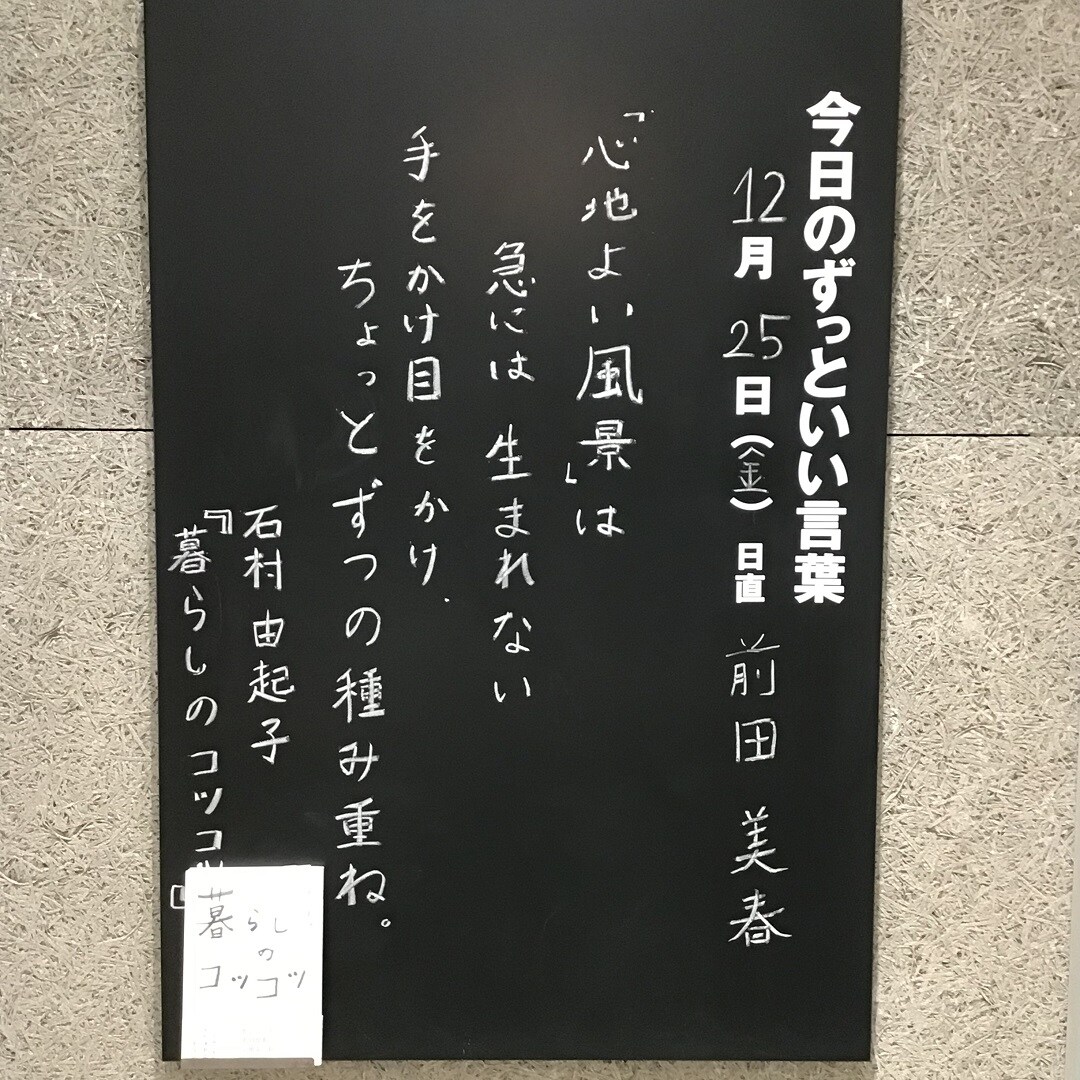 今日のずっといい言葉
12月25日(金) 日直 前田 美春
「心地よい風景」は
急には 生まれない
手をかけ目をかけ、
ちょっとずつの種み重ね。
石村由起子
『暮らしのコツコツ』
暮らし
の
コツコツ